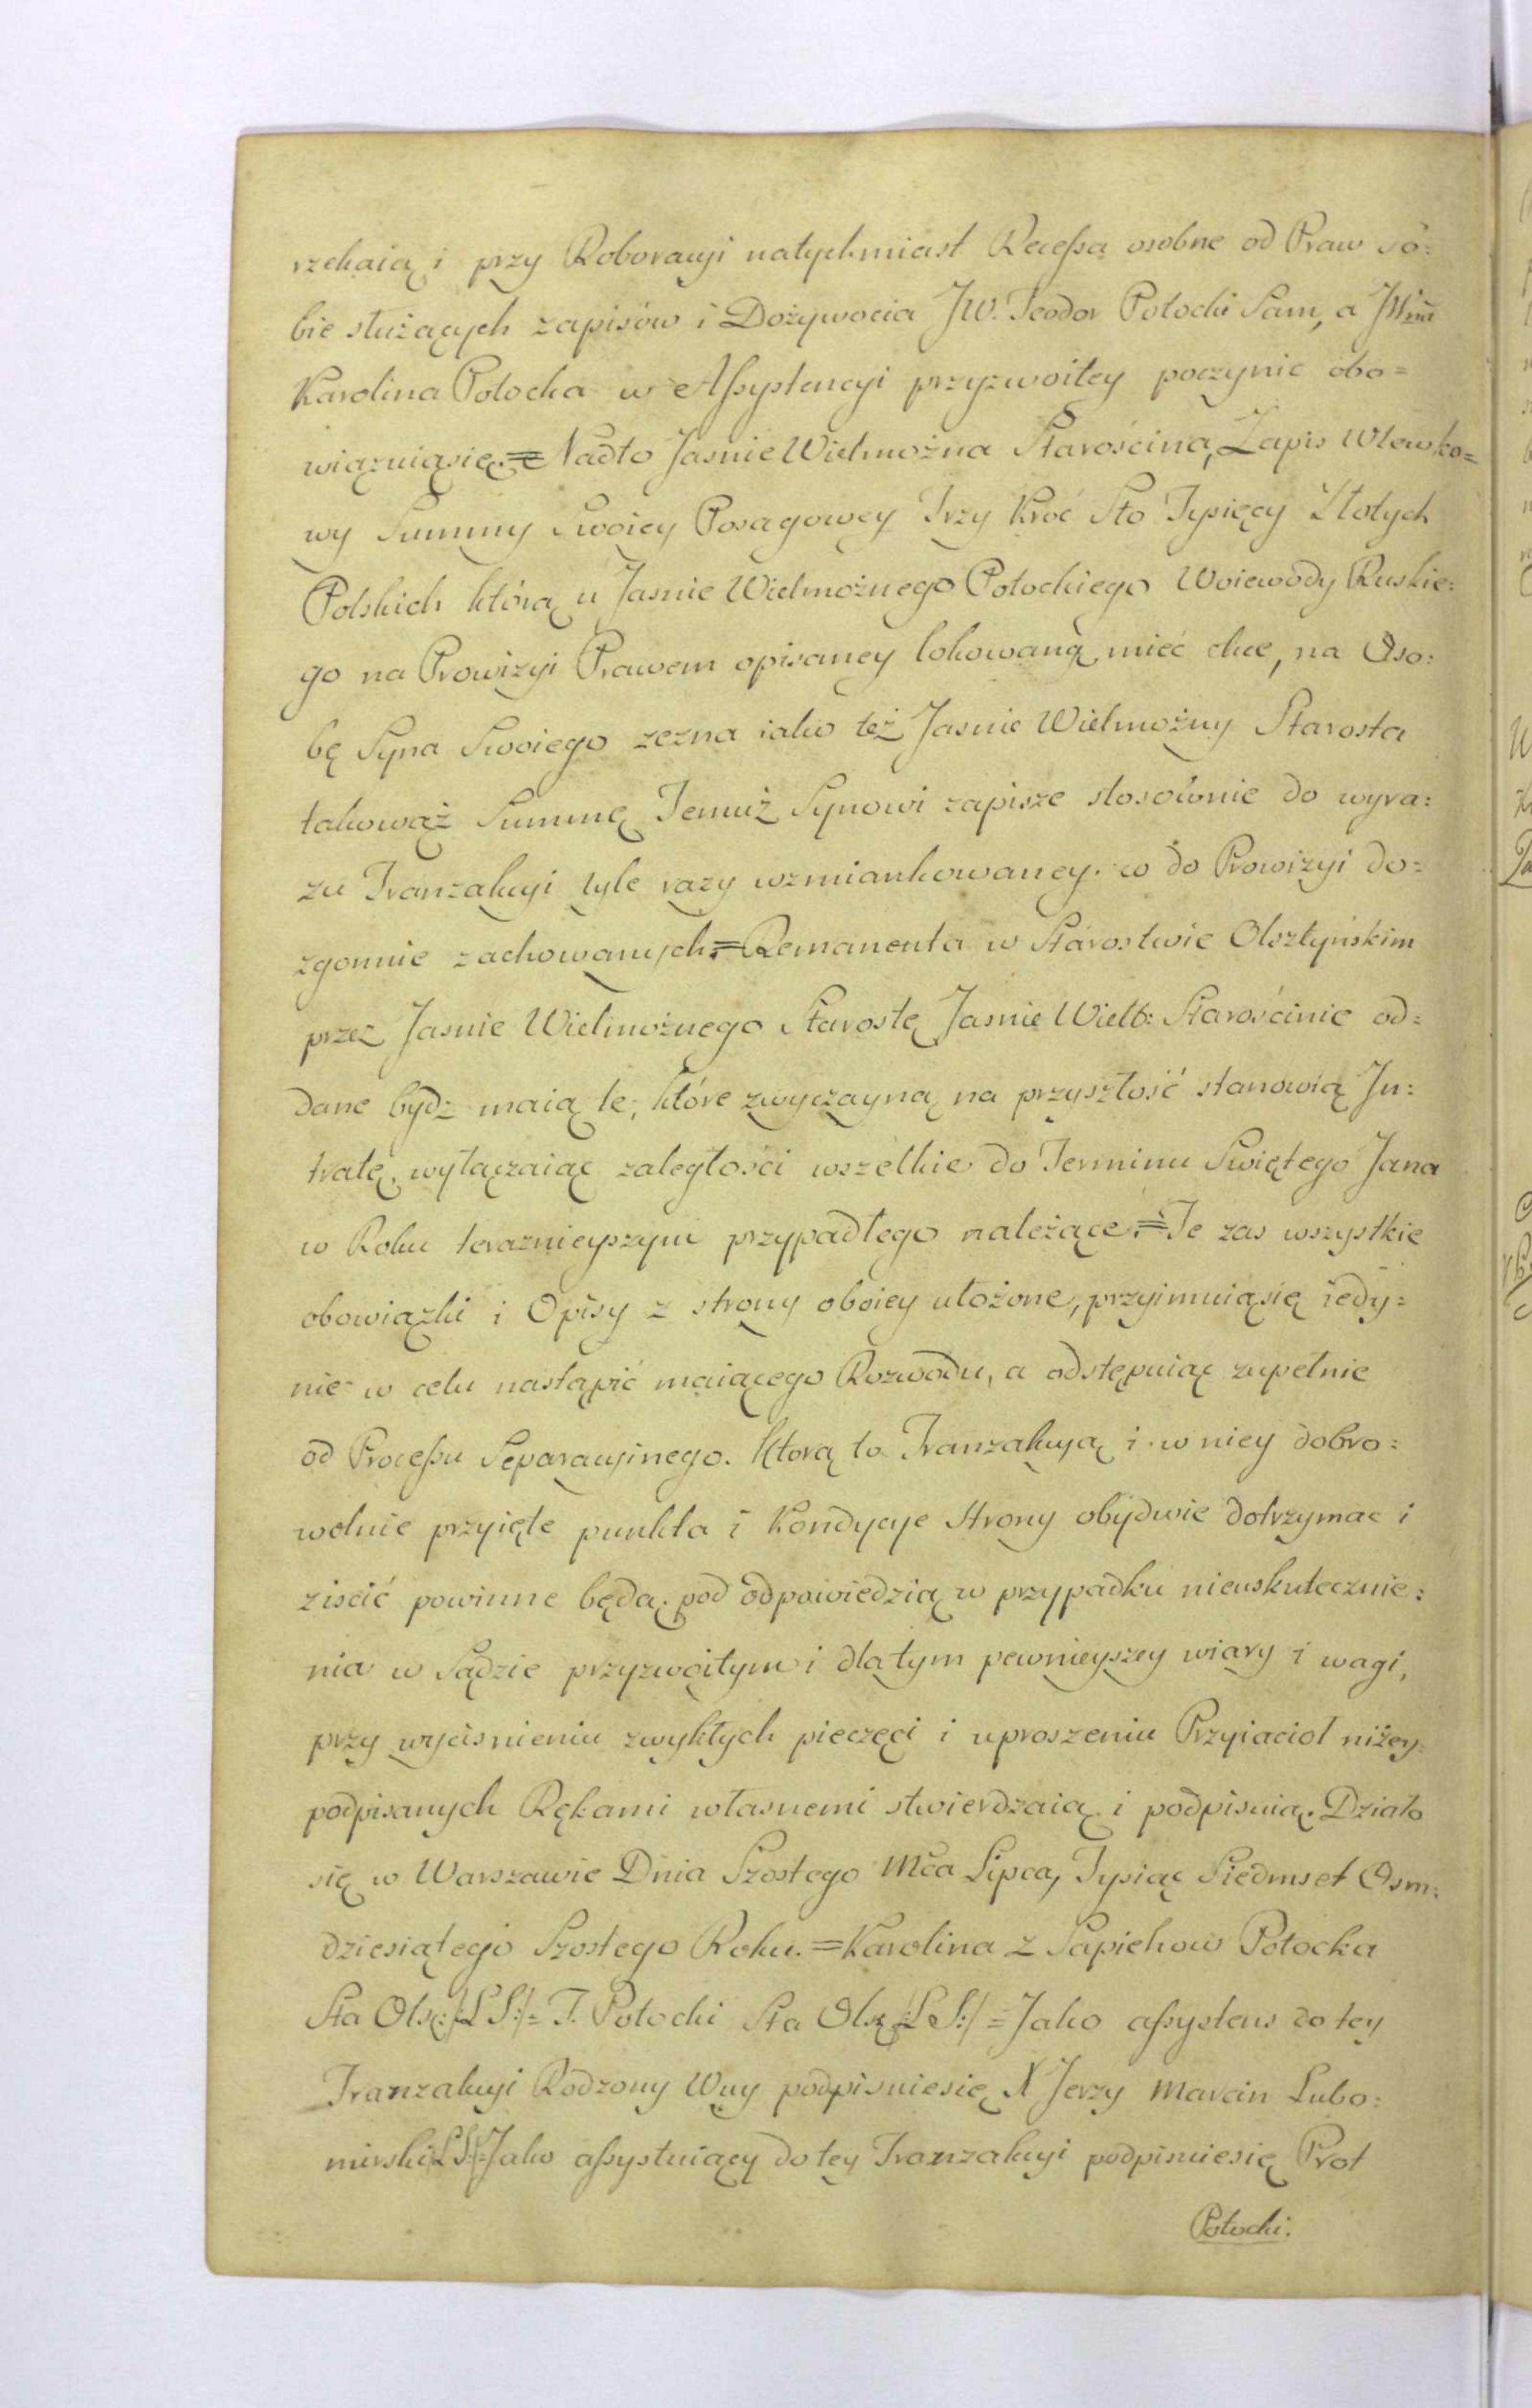 rzekaią i przy Roboracyi natychmiast Recessa osobne od Praw so=
bie służących zapisów i Dożywocia JW. Teodor Potocki Sam, a JWzna
Karolina Potocka w Assystencyi przyzwoitey poczynić obo=
wiązuiąsię.= Nadto Jasnie Wielmożna Starościna, Zapis Wlewko=
wy Summy Swoiey Posagowey Trzy kroć Sto Tysięcy Złotych
Polskich którą u Jasnie Wielmożnego Potockiego Woiewody Ruskie=
go na Prowizyi Prawem opisaney lokowaną mieć chce, na Oso=
bę Syna Swoiego zezna iako też Jasnie Wielmożny Starosta
takowąż Summę Temuż Synowi zapisze stosownie do wyra=
zu Tranzakcyi tyle razy wzmiankowaney. co do Prowizyi do=
zgonnie zachowanych.= Remanenta w Starostwie Olsztyńskim
przez Jasnie Wielmożnego Starostę Jasnie Wielb: Starościnie od=
dane bydz maią te, które zwyczayną na przyszłość stanowią In=
tratę, wyłączaiąc zaległości wszelkie do Terminu Swiętego Jana
w Roku teraznieyszym przypadłego należące.= Te zas wszystkie
obowiązki i Opisy z strony oboiey ułożone, przyimuiąsię iedy=
nie w celu nastąpić maiącego Rozwodu, a odstępuiąc zupełnie
od Processu Separacyinego. Którą to Tranzakcyą i w niey dobro=
wolnie przyięte punkta i Kondycye Strony obydwie dotrzymac i
ziscić powinne będą. pod odpowiedzią w przypadku nieuskutecznie=
nia w Sądzie przyzwoitym i dla tym pewnieyszey wiary i wagi,
przy wycisnieniu zwykłych pieczęci i uproszeniu Przyiacioł niżey=
podpisanych Rękami własnemi stwierdzaią i podpisuią. Działo
się w Warszawie Dnia Szostego Mca Lipca, Tysiąc Siedmset Osm=
dziesiątego Szostego Roku.= Karolina z Sapiehow Potocka
Sta Olsz: /:L S:/= T. Potocki Sta Olsz /:L S:/= Jako assystens do tey
Tranzakcyi Rodzony Wuy podpisuiesię X Jerzy Marcin Lubo=
mirski /:L S:/= Jako assystuiący do tey Tranzakcyi podpisuiesię Prot
Potocki.